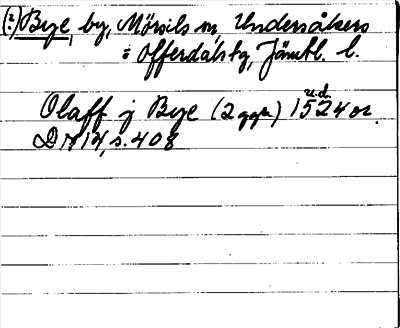 (?) Bye, by, Mörsils sn, Undersåkers
o Offerdals tg, Jämtl. l.
u.d.
Olaff j Bye (2 ggr) 1524 or.
DN 14, s. 408